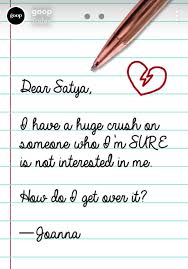 goop
goop
Dear Satya,
I have a huge crush on
someone who I'm SURE
is not interested in me.
How do I get over it?
—Joanna